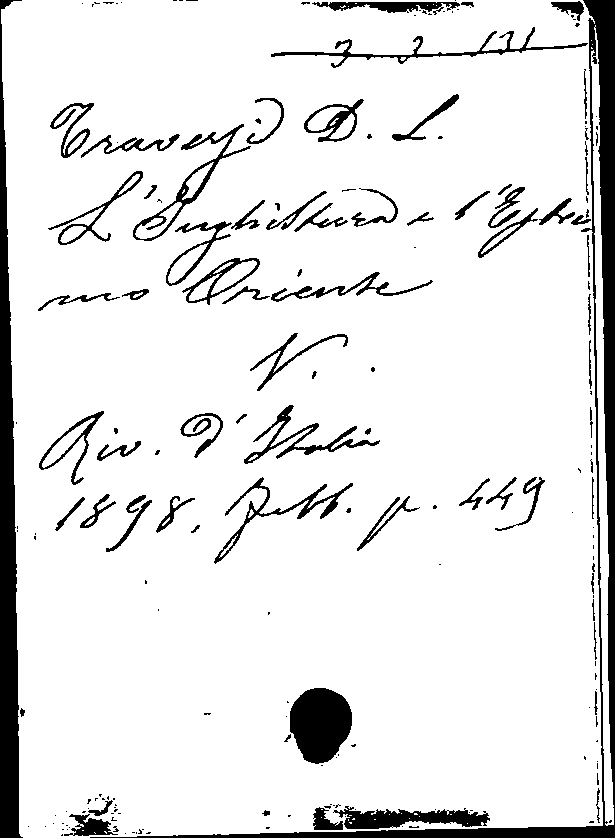 3. 3. 131
Traversi D. L.
L'Inghilterra e l'Estre-
mo Oriente
V.
Riv. d'Italia
1898, Febb. p. 449